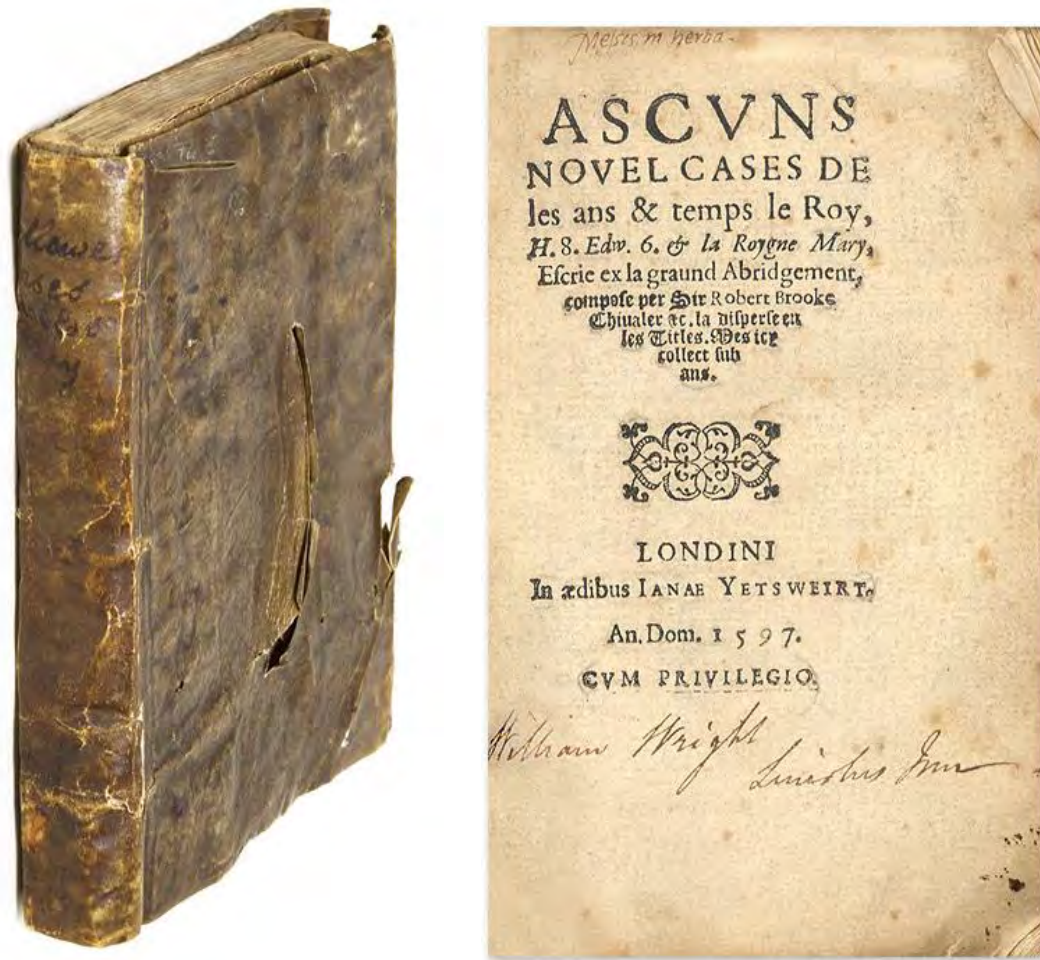 Newe
ASCVNS
NOVEL CASES DE
les ans & temps le Roy,
H. 8. Edw. 6. & la Roygne Mary,
Eſcrie ex la graund Abridgement,
compoſe per Sir Robert Brooke
Chiualer &c. la diſperſe en
les Titles. Mes icy
collect ſub
ans.
LONDINI
In ædibus IANAE YETSWEIRT.
An. Dom. 1597.
CVM PRIVILEGIO.
William Wright
Lincolns Inn